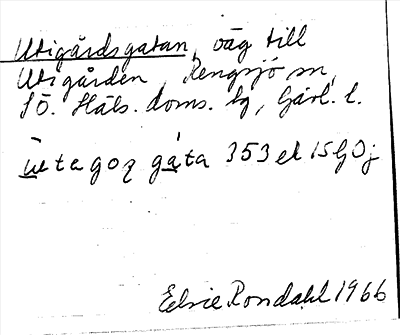 Utigårdsgatan, väg till
Utigården, Rengsjö sn,
SÖ. Häls. doms. lg, Gävl. l.
ɯtegoɀ gata 353 el 15G0j
Elsie Rondahl 1966